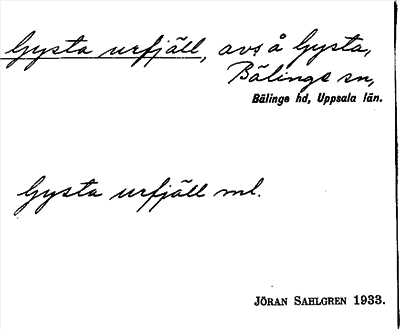 Gysta urfjäll, avs å Gysta,
Bälinge sn,
Bälinge hd, Uppsala län.
Gysta urfjäll ml.
JÖRAN SAHLGREN 1933.